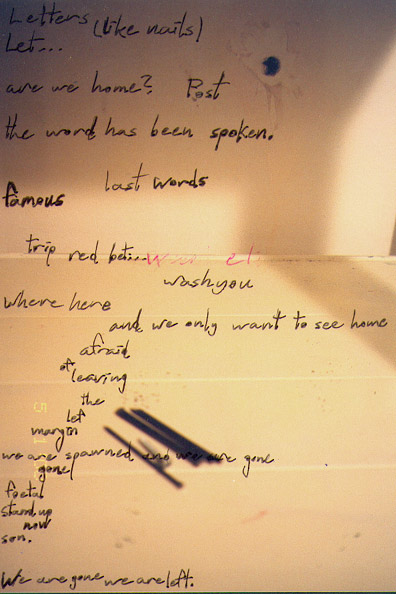 Letters (like nails)
Let...
are we home? Post
the word has been spoken.
last words
famous
trip red bet...
wash you
where here
and we only want to see home
afraid
of
leaving
the
left
margin
we are spawned and we are gone
gone
foetal
stand up
now
son.
We are gone we are left.